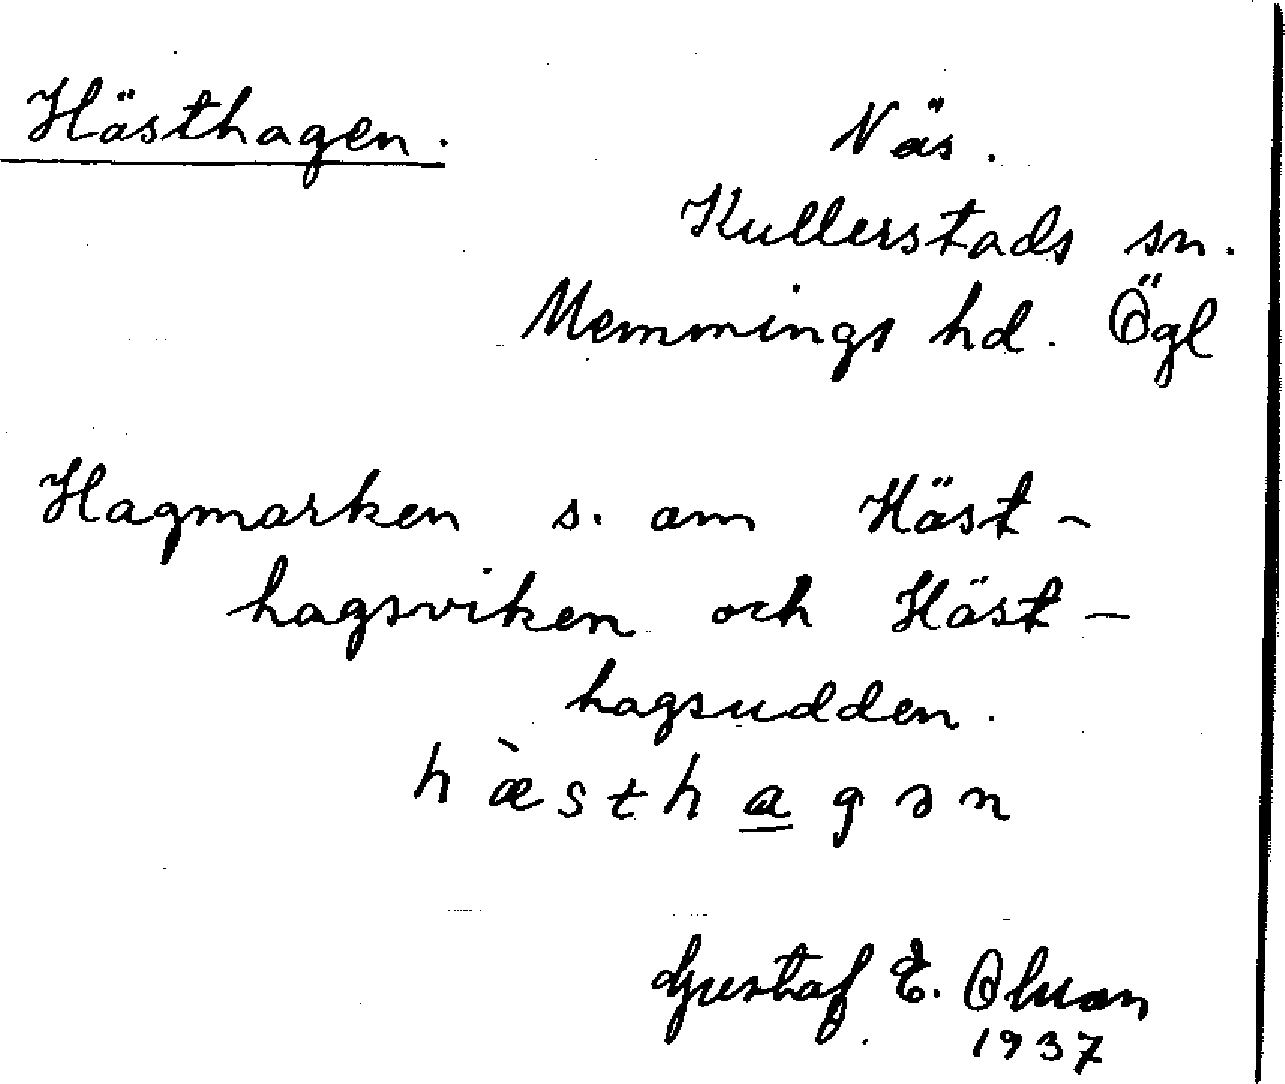 Hästhagen.
Näs.
Kullerstads sn.
Memmings hd. Ögl
Hagmarken s. om Häst-
hagsviken och Häst-
hagsudden.
hæ̀stha̲gən
Gustaf E. Olsson
1937